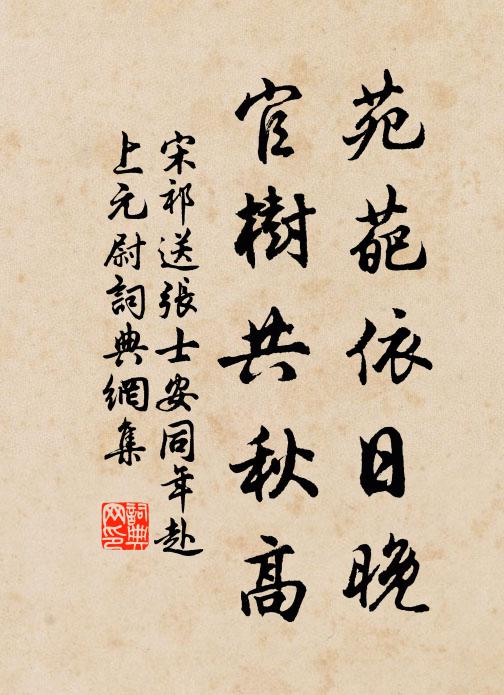 苑葩依日晚
官樹共秋高
宋祁送張士安同年赴
上元尉詞典網集
詞典
网印